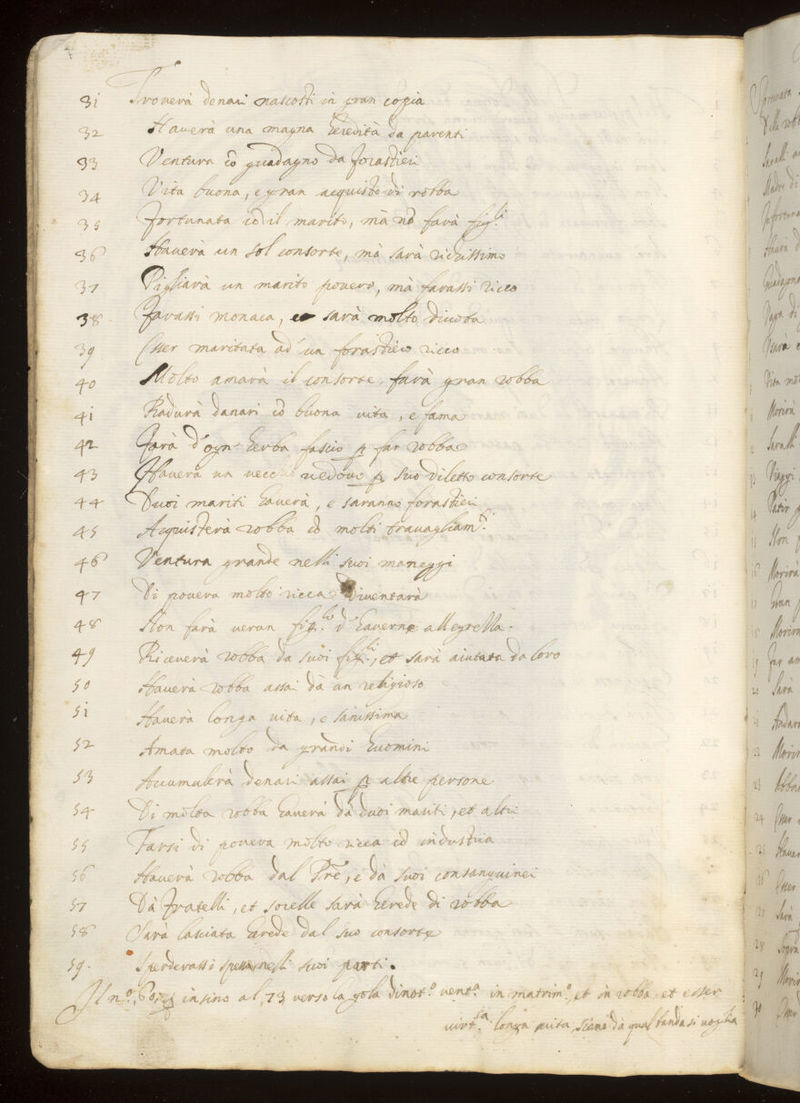 31 Troverà denari nascosti in gran copia
32 Haverà una magna heredità da parenti
33 Ventura cõ guadagno da forastieri
34 Vita buona, e gran acquisto di robba
35 Fortunata cõ il marito, mà nõ farà figli
36 Haverà un sol consorte, mà sarà richissimo
37 Pigliarà un marito povero, mà farassi ricco
38 Farassi monaca, et sarà molto divota
39 Esser maritata ad un forastiero ricco
40 Molto amarà il consorte, farà gran robba
41 Radurà danari cõ buona vita, e fama
42 Farà d'ogni herba fascio p far robba
43 Haverà un vecchio vedovo p suo diletto consorte
44 Duoi mariti haverà, e saranno forastieri
45 Acquisterà robba cõ molti travagliam.ti
46 Ventura grande nelli suoi maneggi
47 Di povera molto ricca diventarà
48 Non farà verun fig.lo d'haverne allegrezza.
49 Riceverà robba da suoi figli, et sarà aiutata da loro
50 Haverà robba assai dà un religioso
51 Haverà longa vita, e sanissima
52 Amata molto da grandi huomini
53 Accumulerà denari assai p altre persone
54 Di molta robba haverà dà duoi mariti, et altri
55 Farsi di povera molto ricca cõ industria
56 Haverà robba dal Prẽ, e dà suoi consanguinei
57 Dà Fratelli, et sorelle sarà herede di robba
58 Sarà lasciata herede dal suo consorte
59. Sperderassi spesso nelli suoi parti.
Il n.o 60 insino al 73 verso la gola dinot.o vent.a in matrim.o, et in robba et esser
virt.sa longa vita, siano dà qual banda si voglia